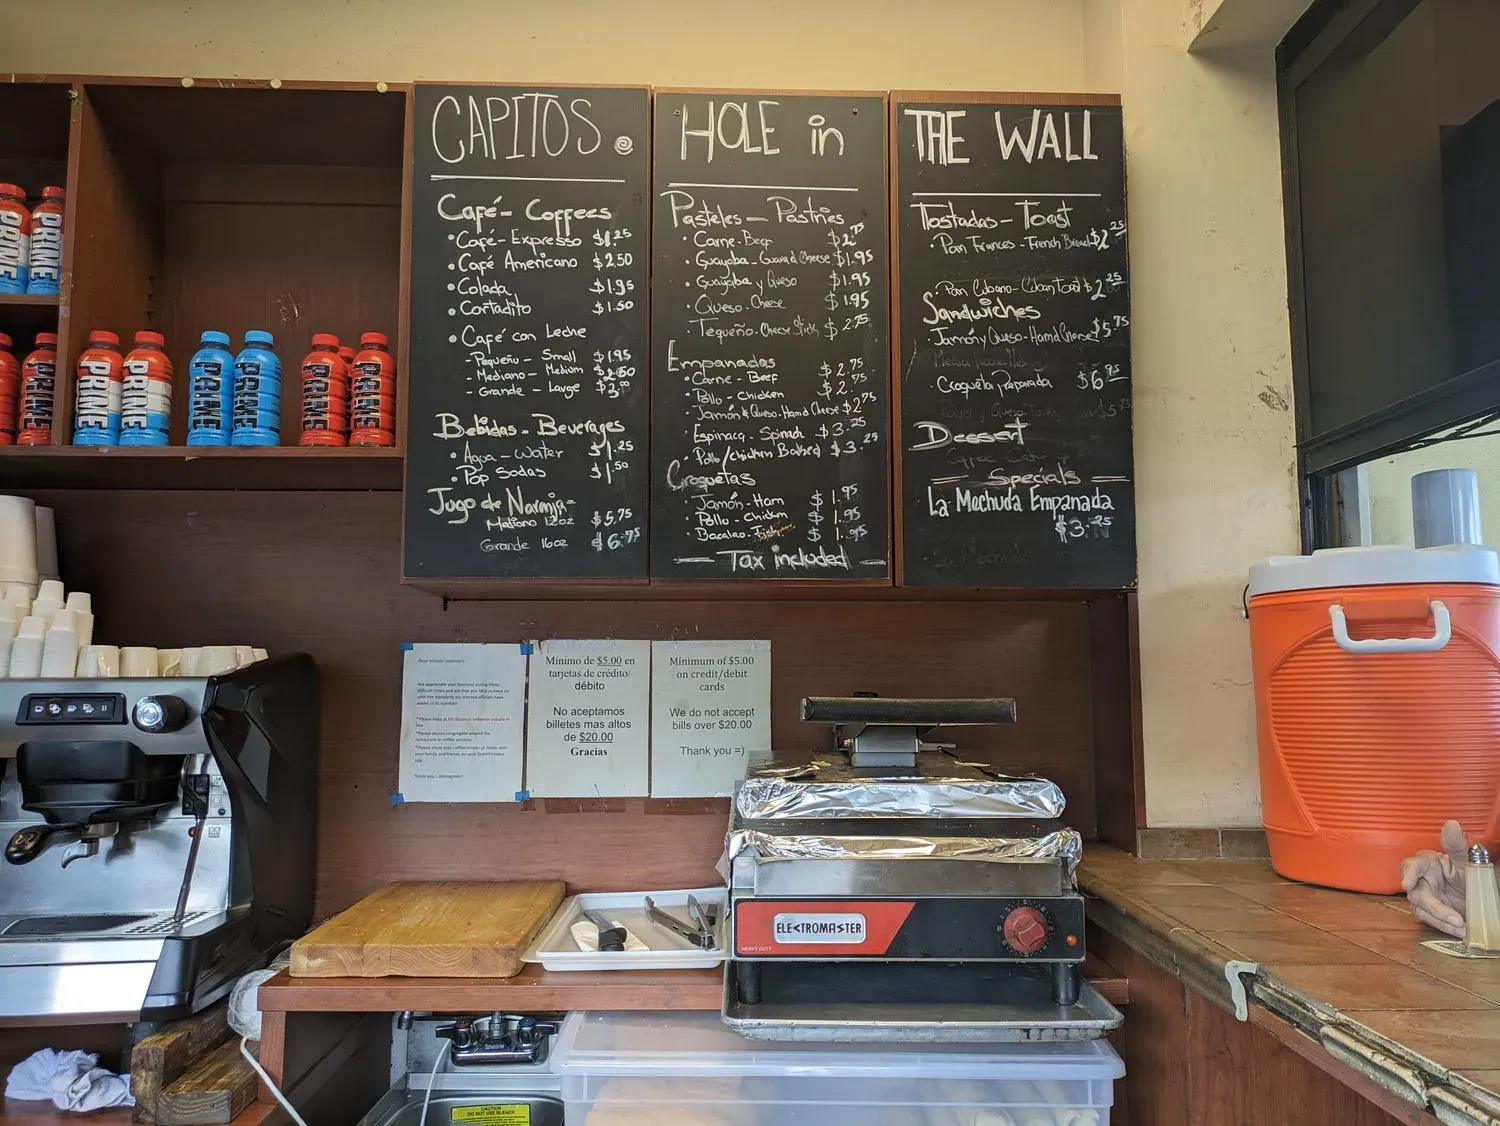 CAPITOS.
Café - Coffees
• Café - Expresso $1.25
• Café Americano $2.50
• Colada $1.95
• Cortadito $1.50
• Café con Leche
- Pequeño - Small $1.95
- Mediano - Medium
- Grande - Large $3.00
Bebidas - Beverages
• Agua - Water $1.25
• Pop Sodas $1.50
Jugo de Naranja -
Mediano 12oz $5.75
Grande 16oz $6.75
HOLE in
Pasteles - Pastries
• Carne - Beef $2.75
• Guayaba - Guava & Cheese $1.95
• Guayaba y Queso $1.95
• Queso - Cheese $1.95
• Tequeño - Cheese Stick $2.75
Empanadas
• Carne - Beef $2.75
• Pollo - Chicken $2.75
• Jamón & Queso - Ham & Cheese $2.75
• Espinaca - Spinach $3.25
• Pollo/chicken Baked $3.25
Croquetas
• Jamón - Ham $1.95
• Pollo - Chicken $1.95
• Bacalao - Fish $1.95
— Tax included —
THE WALL
Tostadas - Toast
• Pan Frances - French Bread $2.25
• Pan Cubano - Cuban Toast $2.25
Sandwiches
• Jamón y Queso - Ham & $5.75
• Croqueta Preparada $6.95
Dessert
Coffee Cake
— Specials —
La Mechuda Empanada
$3.25
PRIME
PRIME
PRIME
PRIME
PRIME
PRIME
PRIME
PRIME
We appreciate your business during these
difficult times and ask that you help us keep
with the standards our elected officials have
asked us to maintain
*Please do not congregate around the
restaurant or coffee window
*Please enjoy your coffee/snacks at home with
Mínimo de $5.00 en
tarjetas de crédito/
débito
No aceptamos
billetes mas altos
de $20.00
Gracias
Mínimum of $5.00
on credit/debit
cards
We do not accept
bills over $20.00
Thank you =)
ELECTROMASTER
HEAVY DUTY
CAUTION
DO NOT USE BLEACH